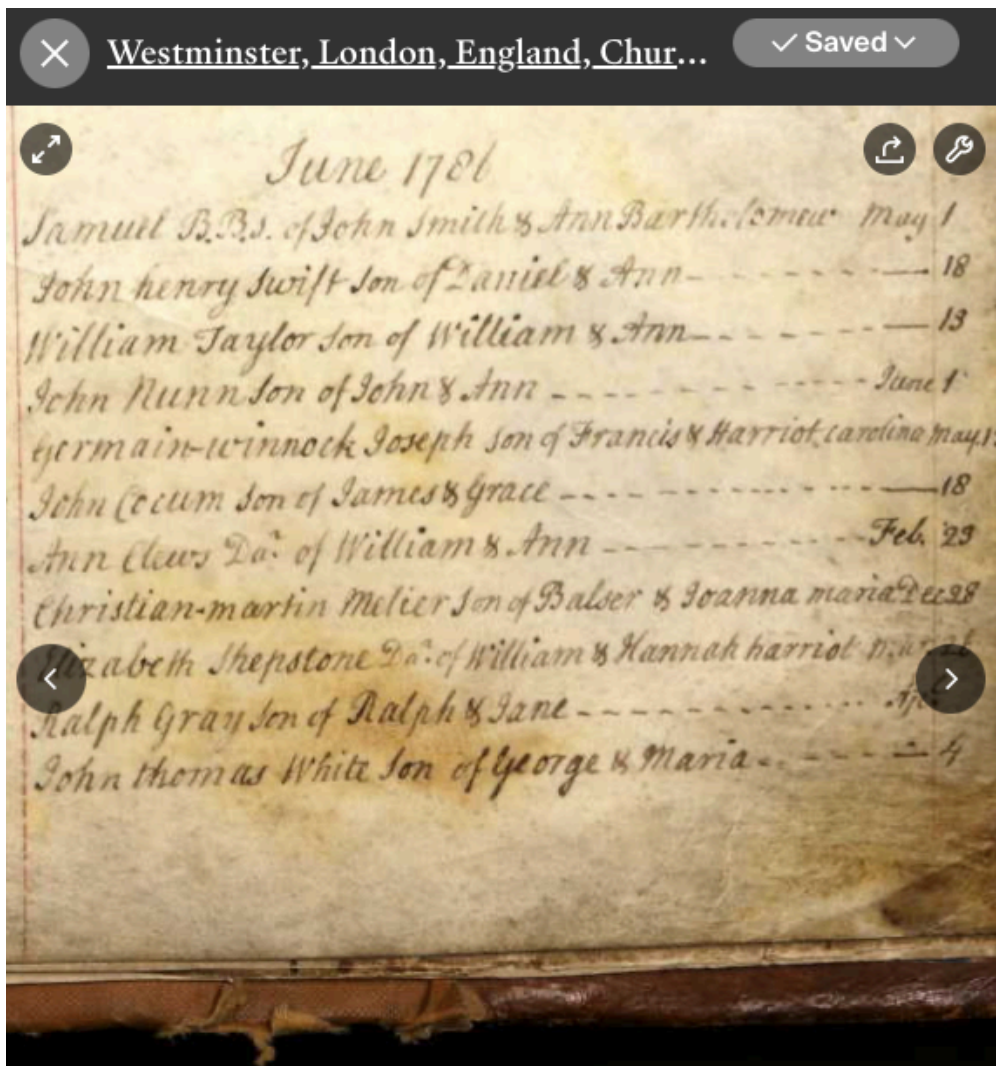 Westminster, London, England, Chur...
Saved
June 1786
Samuel B.B.s. of John Smith & Ann Bartholomew May 1
John henry Swift Son of Daniel & Ann - 18
William Taylor Son of William & Ann - 13
John Nunn Son of John & Ann - June 1
Germain-winnock Joseph Son of Francis & Harriot carolina May
John Cocum Son of James & Grace - 18
Ann Clews Dar. of William & Ann - Feb. 23
Christian-martin Melier Son of Balser & Joanna maria Dec 28
Elizabeth Shepstone Dar. of William & Hannah harriot
Ralph Gray Son of Ralph & Jane -
John thomas White Son of George & Maria - 4